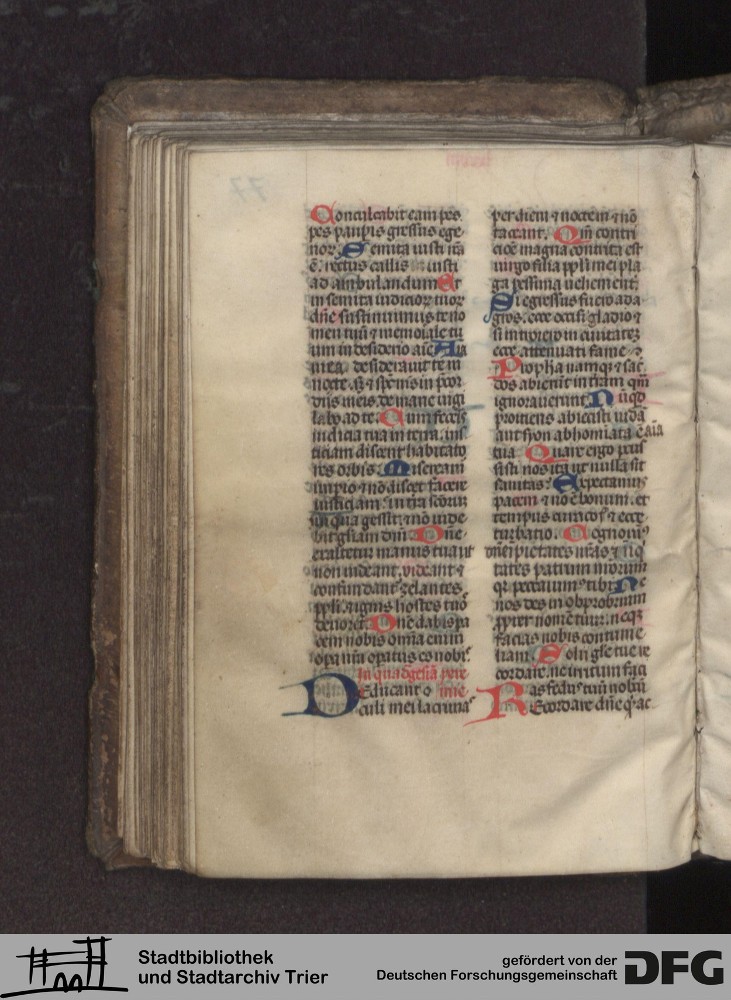 Conculcabit eam pes
pes paup̄is gressus ege
nor̄. Semita iusti r̄ta
ē. rectus callis iusti
ad ambulandum Et
in semita iudicior̄ tuor̄
dn̄e sustinuimus te no
men tuū ⁊ memoriale tu
um in desiderio aīe Aīa
mea desiderauit te in
nocte. sꝫ ⁊ sp̄u meo in p̄cor
diis meis. de mane uigi
labo ad te. Cum fec̄is
iudicia tua in terra. ius
ticiam discent habitato
res orbis. Misereami
impio ⁊ nō discet facere
iusticiam. in tr̄a sc̄oru
in qua gessit. ⁊ nō uide
bit gl̄iam dn̄i Dn̄e
exaltetur manus tua ut
non uideant. uideant ⁊
confundant᷑ zelantes
ppl̄i. ⁊ ignis hostes tuos
deuoret. Dn̄e dabis pa
cem nobis om̄ia enim
opa nr̄a opatus es nobis.
In quadͣgesīa
DEducant o
culi mei lacrimas
per diem ⁊ noctem ⁊ nō
taceant. Qm̄ contri
cioē magna contrita est
uirgo filia ppl̄i mei pla
ga pessima uehement᷑
Si egressus fuero ad a
gros. ecce occisi gladio ⁊
si introiero in ciuitatez
ecce attenuati fame ⁊
Proph̄a namqꝫ ⁊ sac̄
dos abierūt in tr̄am qm̄
ignorauerunt. Nūqd
proiciens abiecisti iudā
aut syon abhomīata ē aīa
tua Quare ergo pcus
sisti nos ita ut nulla sit
sanitas? Expectauimꝰ
pacem ⁊ nō ē bonum. et
tempus curacōis ⁊ ecce
turbatio. Cognouimꝰ
dn̄e īpietates nr̄as ⁊ īiq̄
tates patrum nr̄orum
qꝛ peccauimꝰ tibi Ne
nos des in obprobrium
ꝓpter nomē tuū. neqꝫ
facias nobis contume
liam. Solij gl̄e tue re
cordare. ne irritum faci
as fedus tuū nobiscū
REcordare dn̄e q̄ ac
Stadtbibliothek
und Stadtarchiv Trier
gefördert von der
Deutschen Forschungsgemeinschaft
DFG